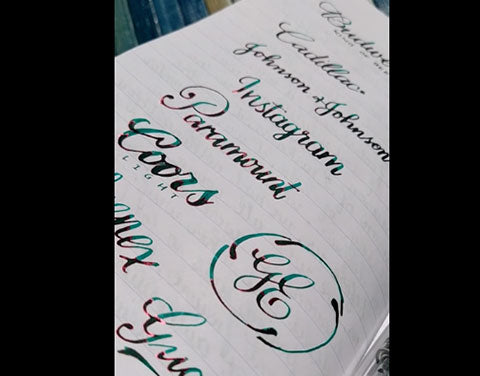 Cadillac
Johnson & Johnson
Instagram
Paramount
Coors
LIGHT
GE